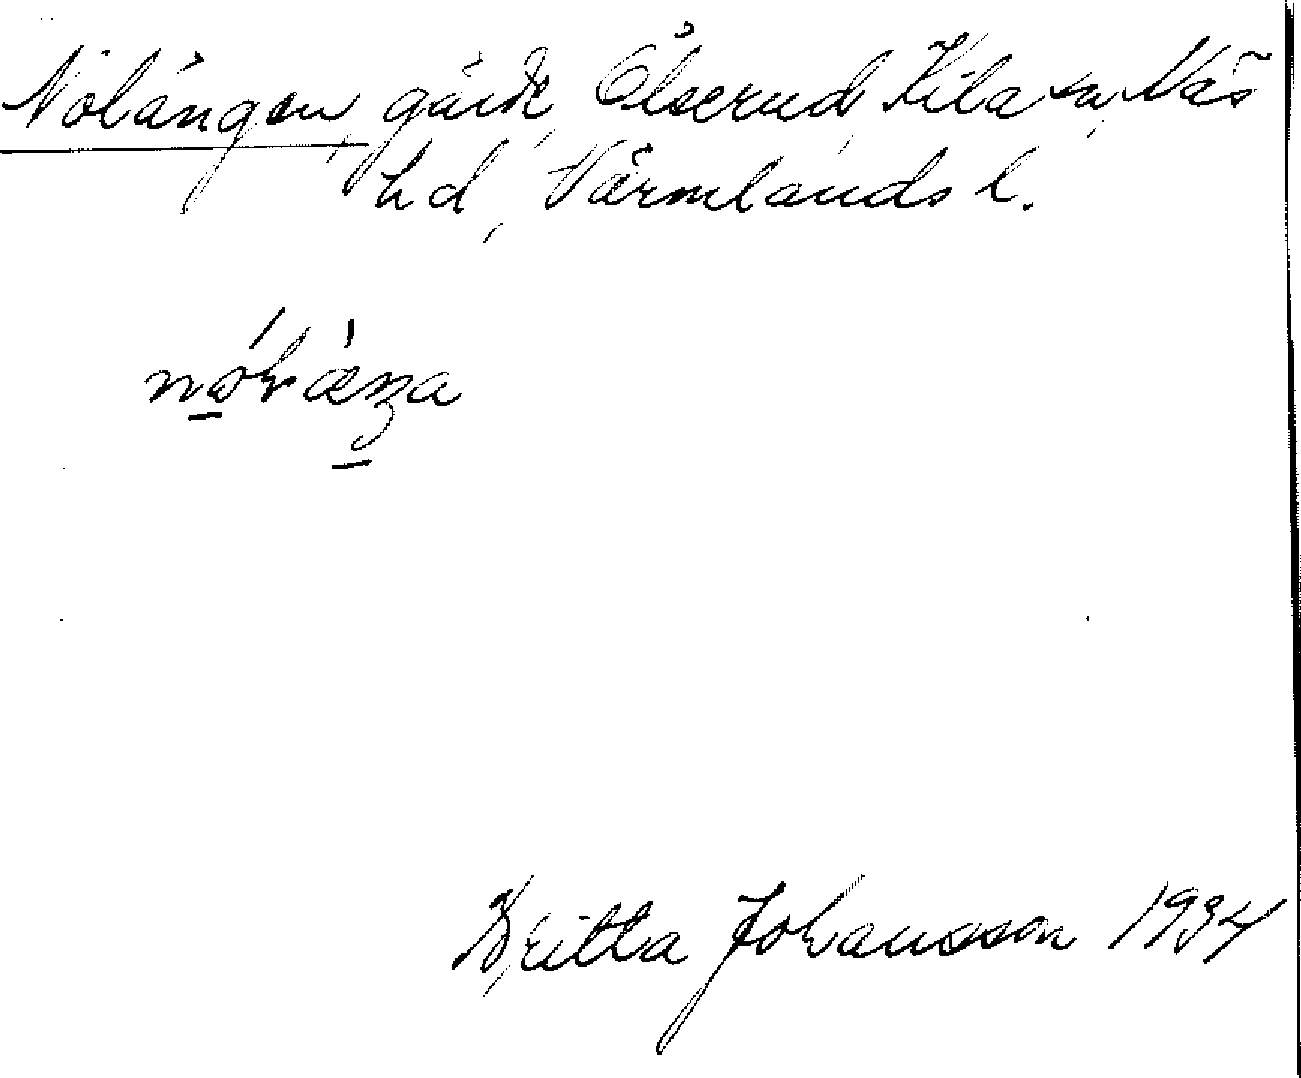 Nolängen, gärde, Ölserud, Kila sn, Näs
hd, Värmlands l.
Britta Johansson 1934